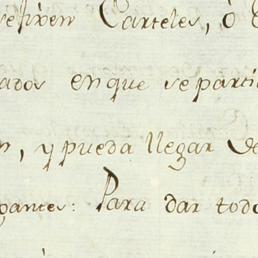 se fixen Carteles, ó
ados en que se parti
n, y pueda llegar de
gantes: Para dar todo